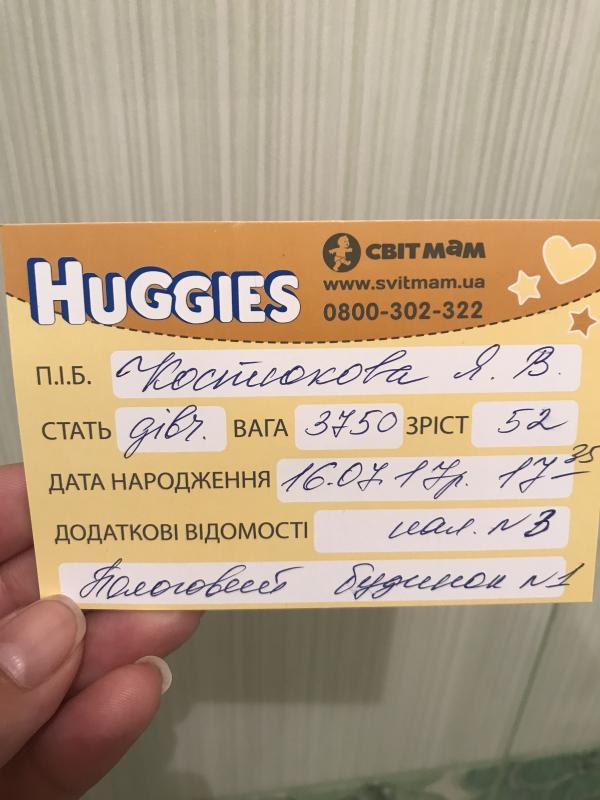 HUGGIES
СВІТ МАМ
www.svitmam.ua
0800-302-322
П.І.Б. Костюкова Я. В.
СТАТЬ дівч. ВАГА 3750 ЗРІСТ 52
ДАТА НАРОДЖЕННЯ 16.07.17р. 17 35
ДОДАТКОВІ ВІДОМОСТІ пал. N 3
Пологовий будинок N1